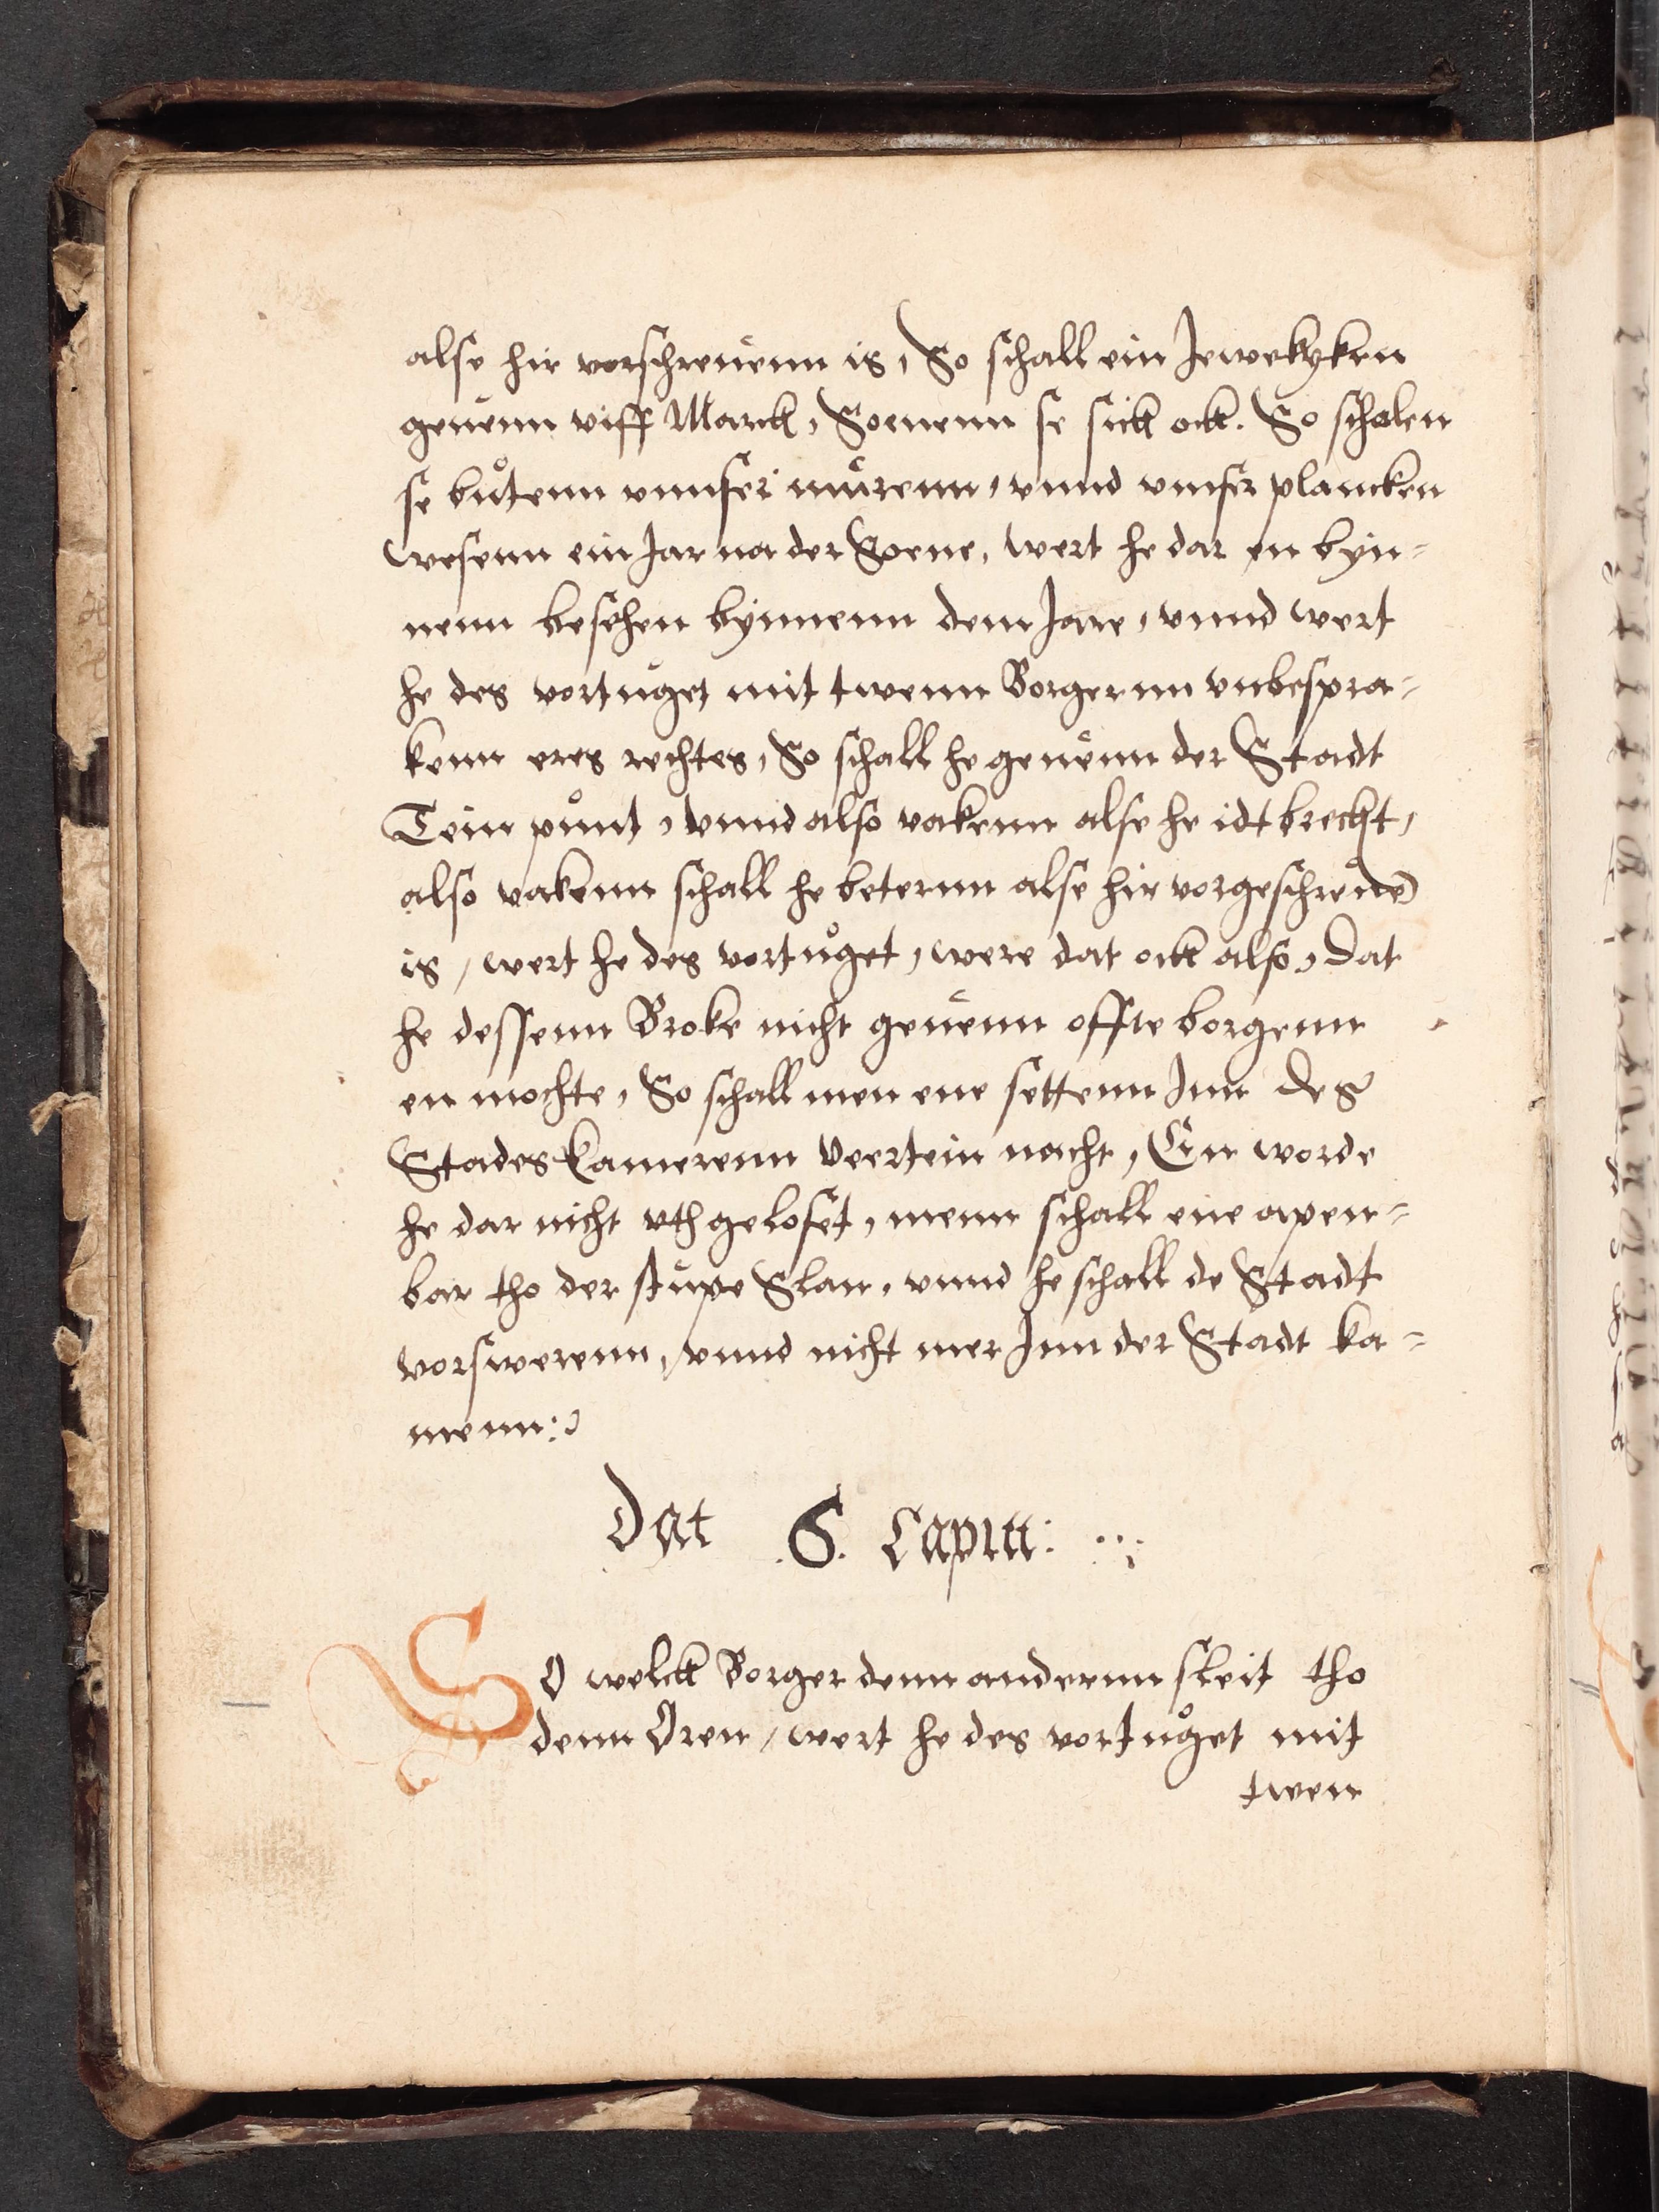 alse hir vorschreuenn is, So schall ein Jewelyken
geuenn viff Marck, Soenenn se sick ock. So scholen
se bůtenn vnnser můrenn, vnnd vnnser plancken
wesenn ein Jar na der Soene, wert he dar en byn=
nenn besehen bynnenn dem Jare, vnnd wert
he des vortůget mit twenn Borgernn vnbespra=
kenn eres rechtes, So schall he geuenn der Stadt
Tein půnt, vnnd also vakenn alse he idt breckt,
also vakenn schall he beternn alse hir vorgeschreuē
is, wert he des vortůget, were dat ock also, dat
he dessenn Broke nicht geuenn offte borgenn
en mochte, So schall men ene settenn Inn des
Stades kamerenn Veertein nacht, En worde
he dar nicht vthgeloset, menn schall ene apen=
bar tho der stůpe Slan, vnnd he schall de Stadt
vorswerenn, vnnd nicht mer Inn der Stadt ka=
menn:
Dat .6. Capitt:
SO welck Borger denn andernn sleit tho
denn Oren, wert he des vortůget mit
twen